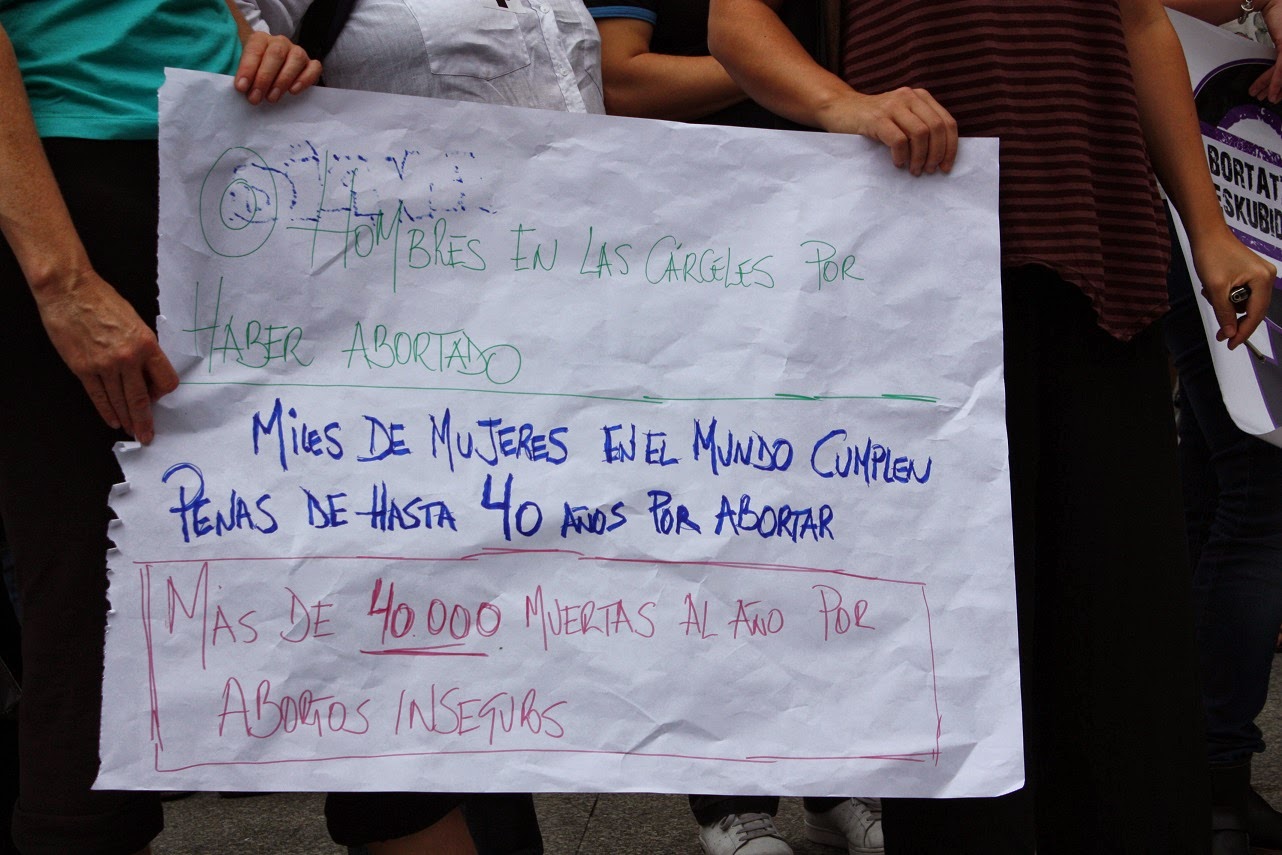 0
HOMBRES EN LAS CÁRCELES POR
HABER ABORTADO
MILES DE MUJERES EN EL MUNDO CUMPLEN
PENAS DE HASTA 40 AÑOS POR ABORTAR
MÁS DE 40.000 MUERTAS AL AÑO POR
ABORTOS INSEGUROS
BORTAT
ESKUBID